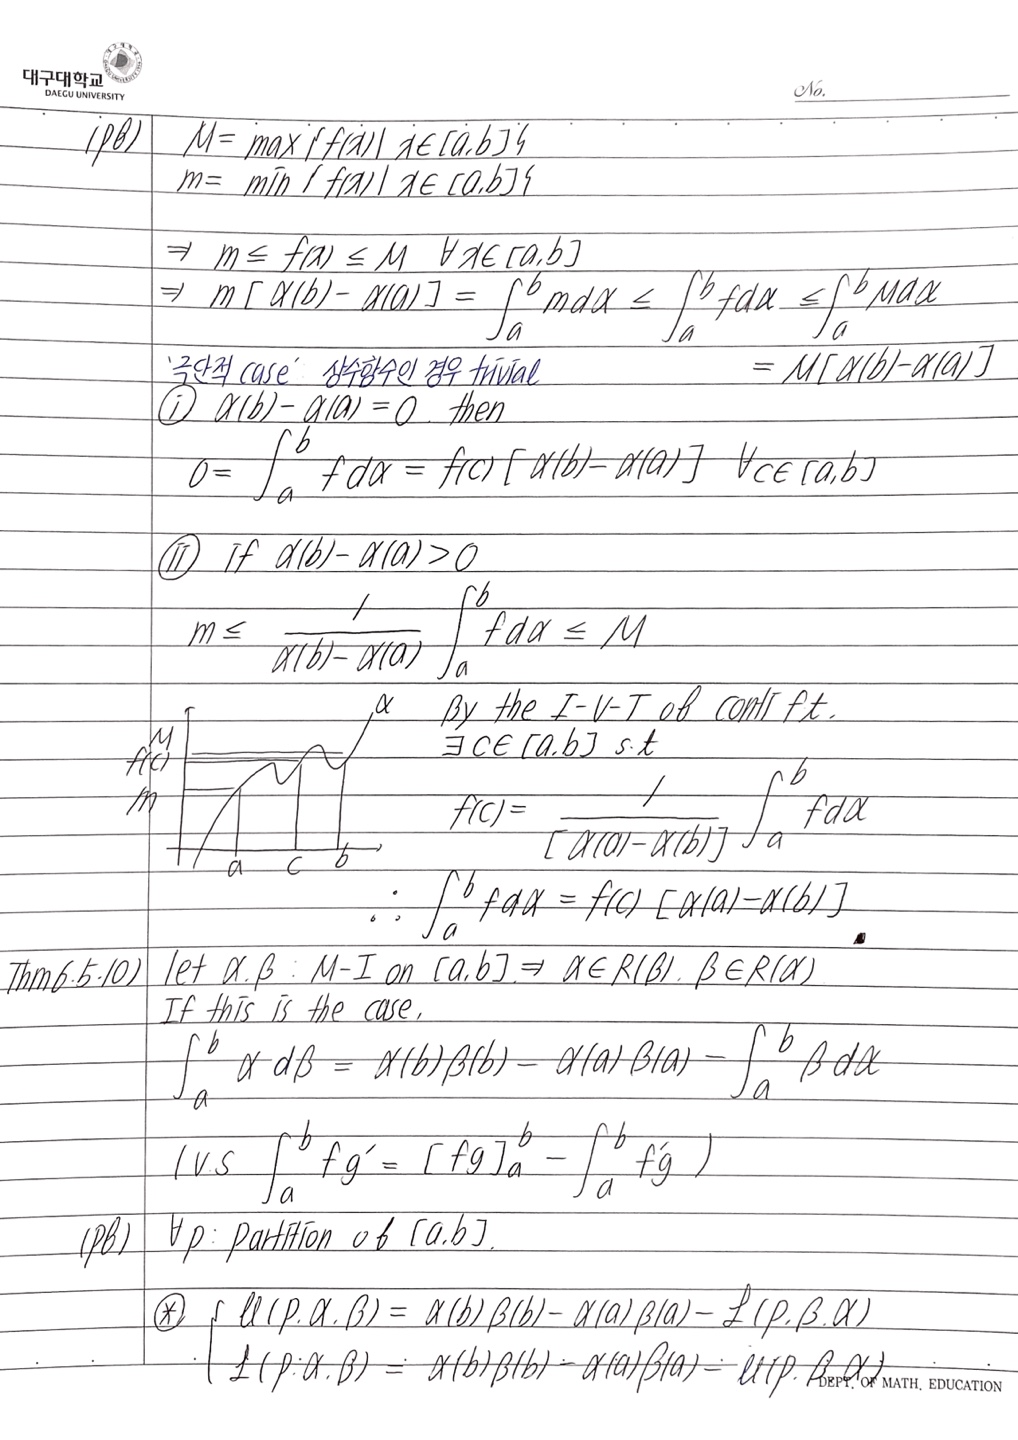 대구대학교
DAEGU UNIVERSITY
No.
(pf) M = max{f(x)| x∈[a,b]}
m = min{f(x)| x∈[a,b]}
⇒ m ≤ f(x) ≤ M ∀x∈[a,b]
⇒ m[α(b)-α(a)] = ∫_a^b mdα ≤ ∫_a^b fdα ≤ ∫_a^b Mdα
'극단적 case' 상수함수인 경우 trivial = M[α(b)-α(a)]
ⓘ α(b)-α(a)=0 then
0 = ∫_a^b fdα = f(c)[α(b)-α(a)] ∀c∈[a,b]
ⓘⓘ if α(b)-α(a)>0
m ≤ 1/(α(b)-α(a)) ∫_a^b fdα ≤ M
By the I-V-T of conti ft.
∃c∈[a.b] s.t
f(c) = 1/[α(a)-α(b)] ∫_a^b fdα
α
M
f(c)
m
a c b
∴ ∫_a^b fdα = f(c) [α(a)-α(b)]
Thm6.5.10) let α.β : M-I on [a,b] ⇒ α∈R(β). β∈R(α)
If this is the case,
∫_a^b α dβ = α(b)β(b) - α(a)β(a) - ∫_a^b β dα
(v.s ∫_a^b fg′ = [fg]_a^b - ∫_a^b f′g )
(pf) ∀p: partition of [a.b].
⊛ { U(p.α.β) = α(b)β(b) - α(a)β(a) - L(p.β.α)
L(p.α.β) = α(b)β(b) - α(a)β(a) - U(p.β.α)
DEPT. OF MATH. EDUCATION